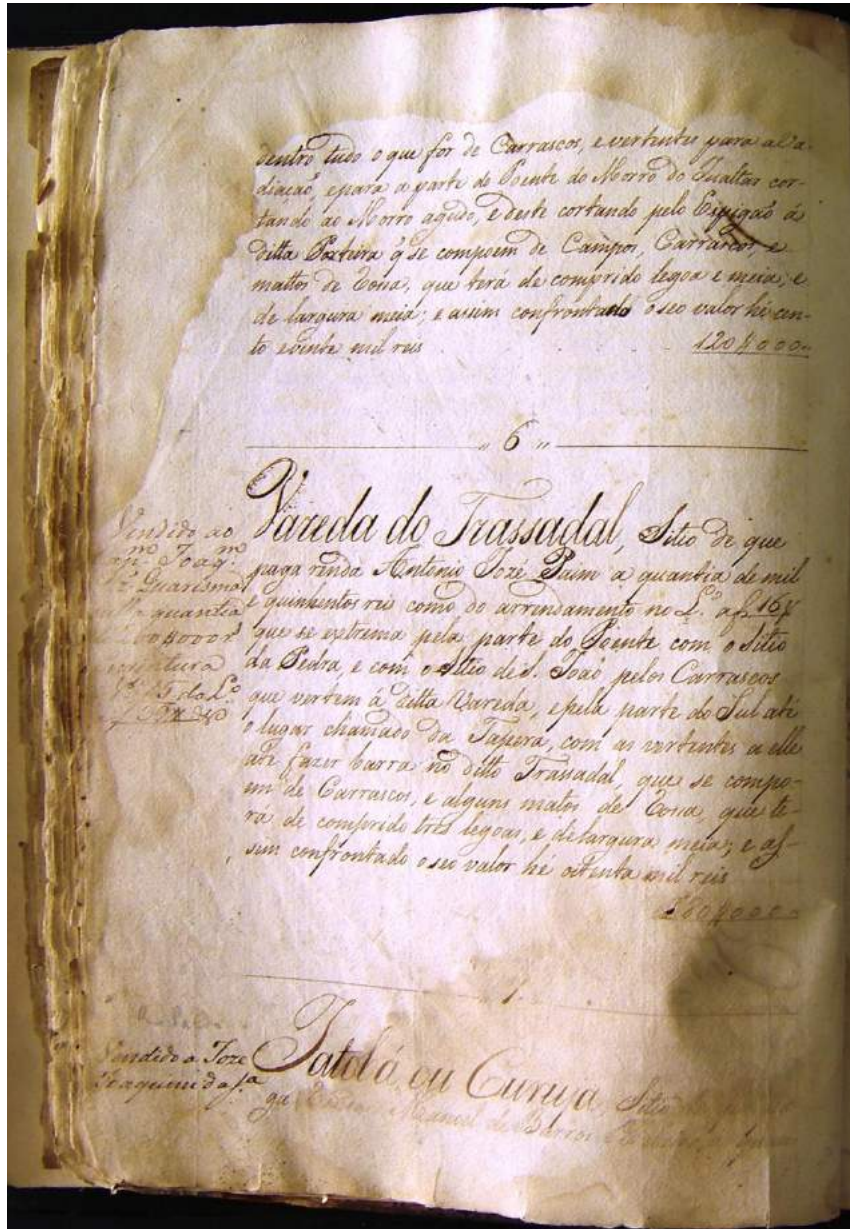 dentro tudo o que for de Carrascos, e vertentes para a Va-
diação, e para a parte do Poente do Morro do Gualtar cor-
tando ao Morro agudo, e deste cortando pelo Espigaõ á
ditta Porteira q̃ se compoem de Campos, Carrascos, e
mattos de Cona, que terá de comprido legoa e meia; e
de largura meia; e assim confrontado o seo valor hé cen-
to e vinte mil reis 120$000
" 6 "
Vareda do Trassadal, Sitio de que
paga renda Antonio Jozé Paim a quantia de mil
e quinhentos reis como do arrendamento no L.º a f 167
que se extrema pela parte do Poente com o Sitio
da Pedra, e com o Sitio de S. Joaõ pelos Carrascos
que vertem á ditta Vareda, e pela parte do Sul até
o lugar chamado da Tapera, com as vertentes a elle
até fazer barra no ditto Trassadal, que se compo-
em de Carrascos, e alguns matos de Cona, que te-
rá de comprido tres legoas, e de largura meia; e as-
sim confrontado o seo valor hé oitenta mil reis
80$000
Vendido ao
Joaq.m
Quarisma
quantia
Jatobá ou Curuja, Sitio
Manoel de Barros
Vendido a Joze
Joaquim da